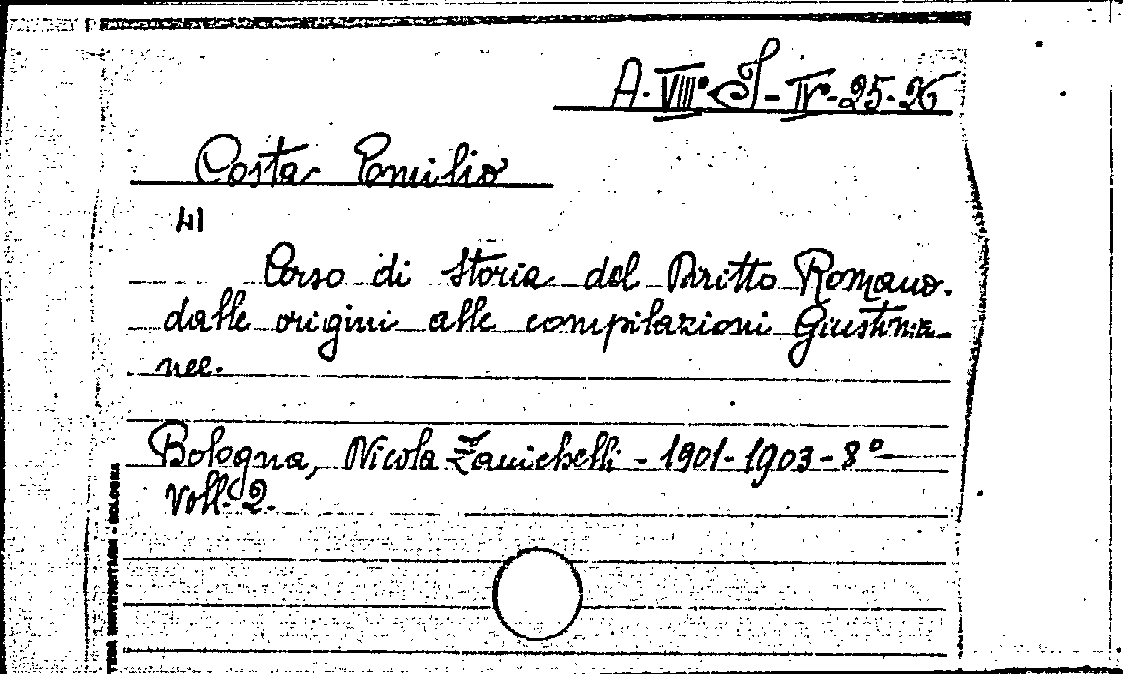 A. VIII° - I - IV° - 25 - 26
Costa Emilio
41
Corso di Storia del Diritto Romano.
dalle origini alle compilazioni Giustinia-
nee.
Bologna, Nicola Zanichelli - 1901 - 1903 - 8°
Voll. 2.
BOLOGNA